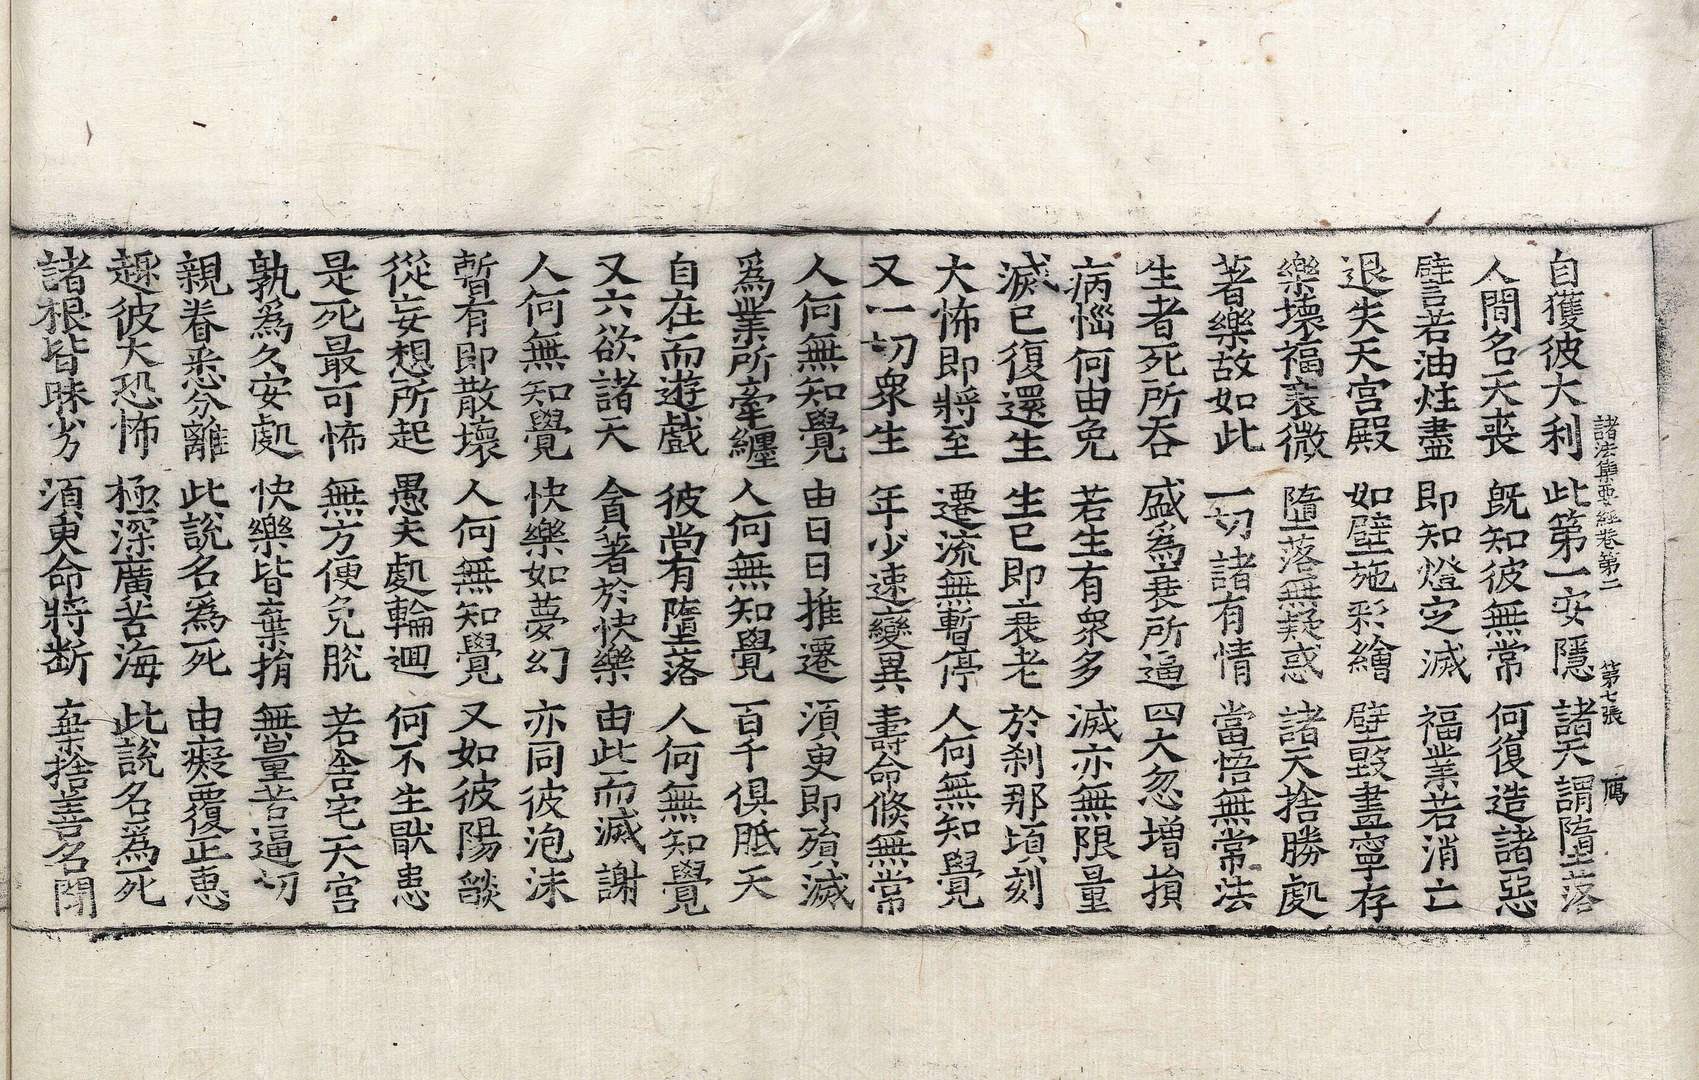 諸法集要經卷第二 第七張 鴈
自獲彼大利 此第一安隱 諸天謂墮落
人間名天喪 旣知彼無常 何復造諸惡
譬若油炷盡 即知燈定滅 福業若消亡
退失天宮殿 如壁施彩繪 壁毀畫寧存
樂壞福衰微 墮落無疑惑 諸天捨勝處
著樂故如此 一切諸有情 當悟無常法
生者死所吞 盛爲衰所逼 四大忽增損
病惱何由免 若生有衆多 滅亦無限量
滅已復還生 生已即衰老 於刹那頃刻
大怖即將至 遷流無暫停 人何無知覺
又一切衆生 年少速變異 壽命倏無常
人何無知覺 由日日推遷 須臾即殞滅
爲業所牽纏 人何無知覺 百千俱胝天
自在而遊戲 彼尚有墮落 人何無知覺
又六欲諸天 貪著於快樂 由此而滅謝
人何無知覺 快樂如夢幻 亦同彼泡沫
暫有即散壞 人何無知覺 又如彼陽燄
從妄想所起 愚夫處輪迴 何不生猒患
是死最可怖 無方便免脫 若舍宅天宮
孰爲久安處 快樂皆棄捐 無量苦逼切
親眷悉分離 此說名爲死 由癡覆正恵
趣彼大恐怖 極深廣苦海 此說名爲死
諸根皆昧劣 須臾命將斷 棄捨善名聞